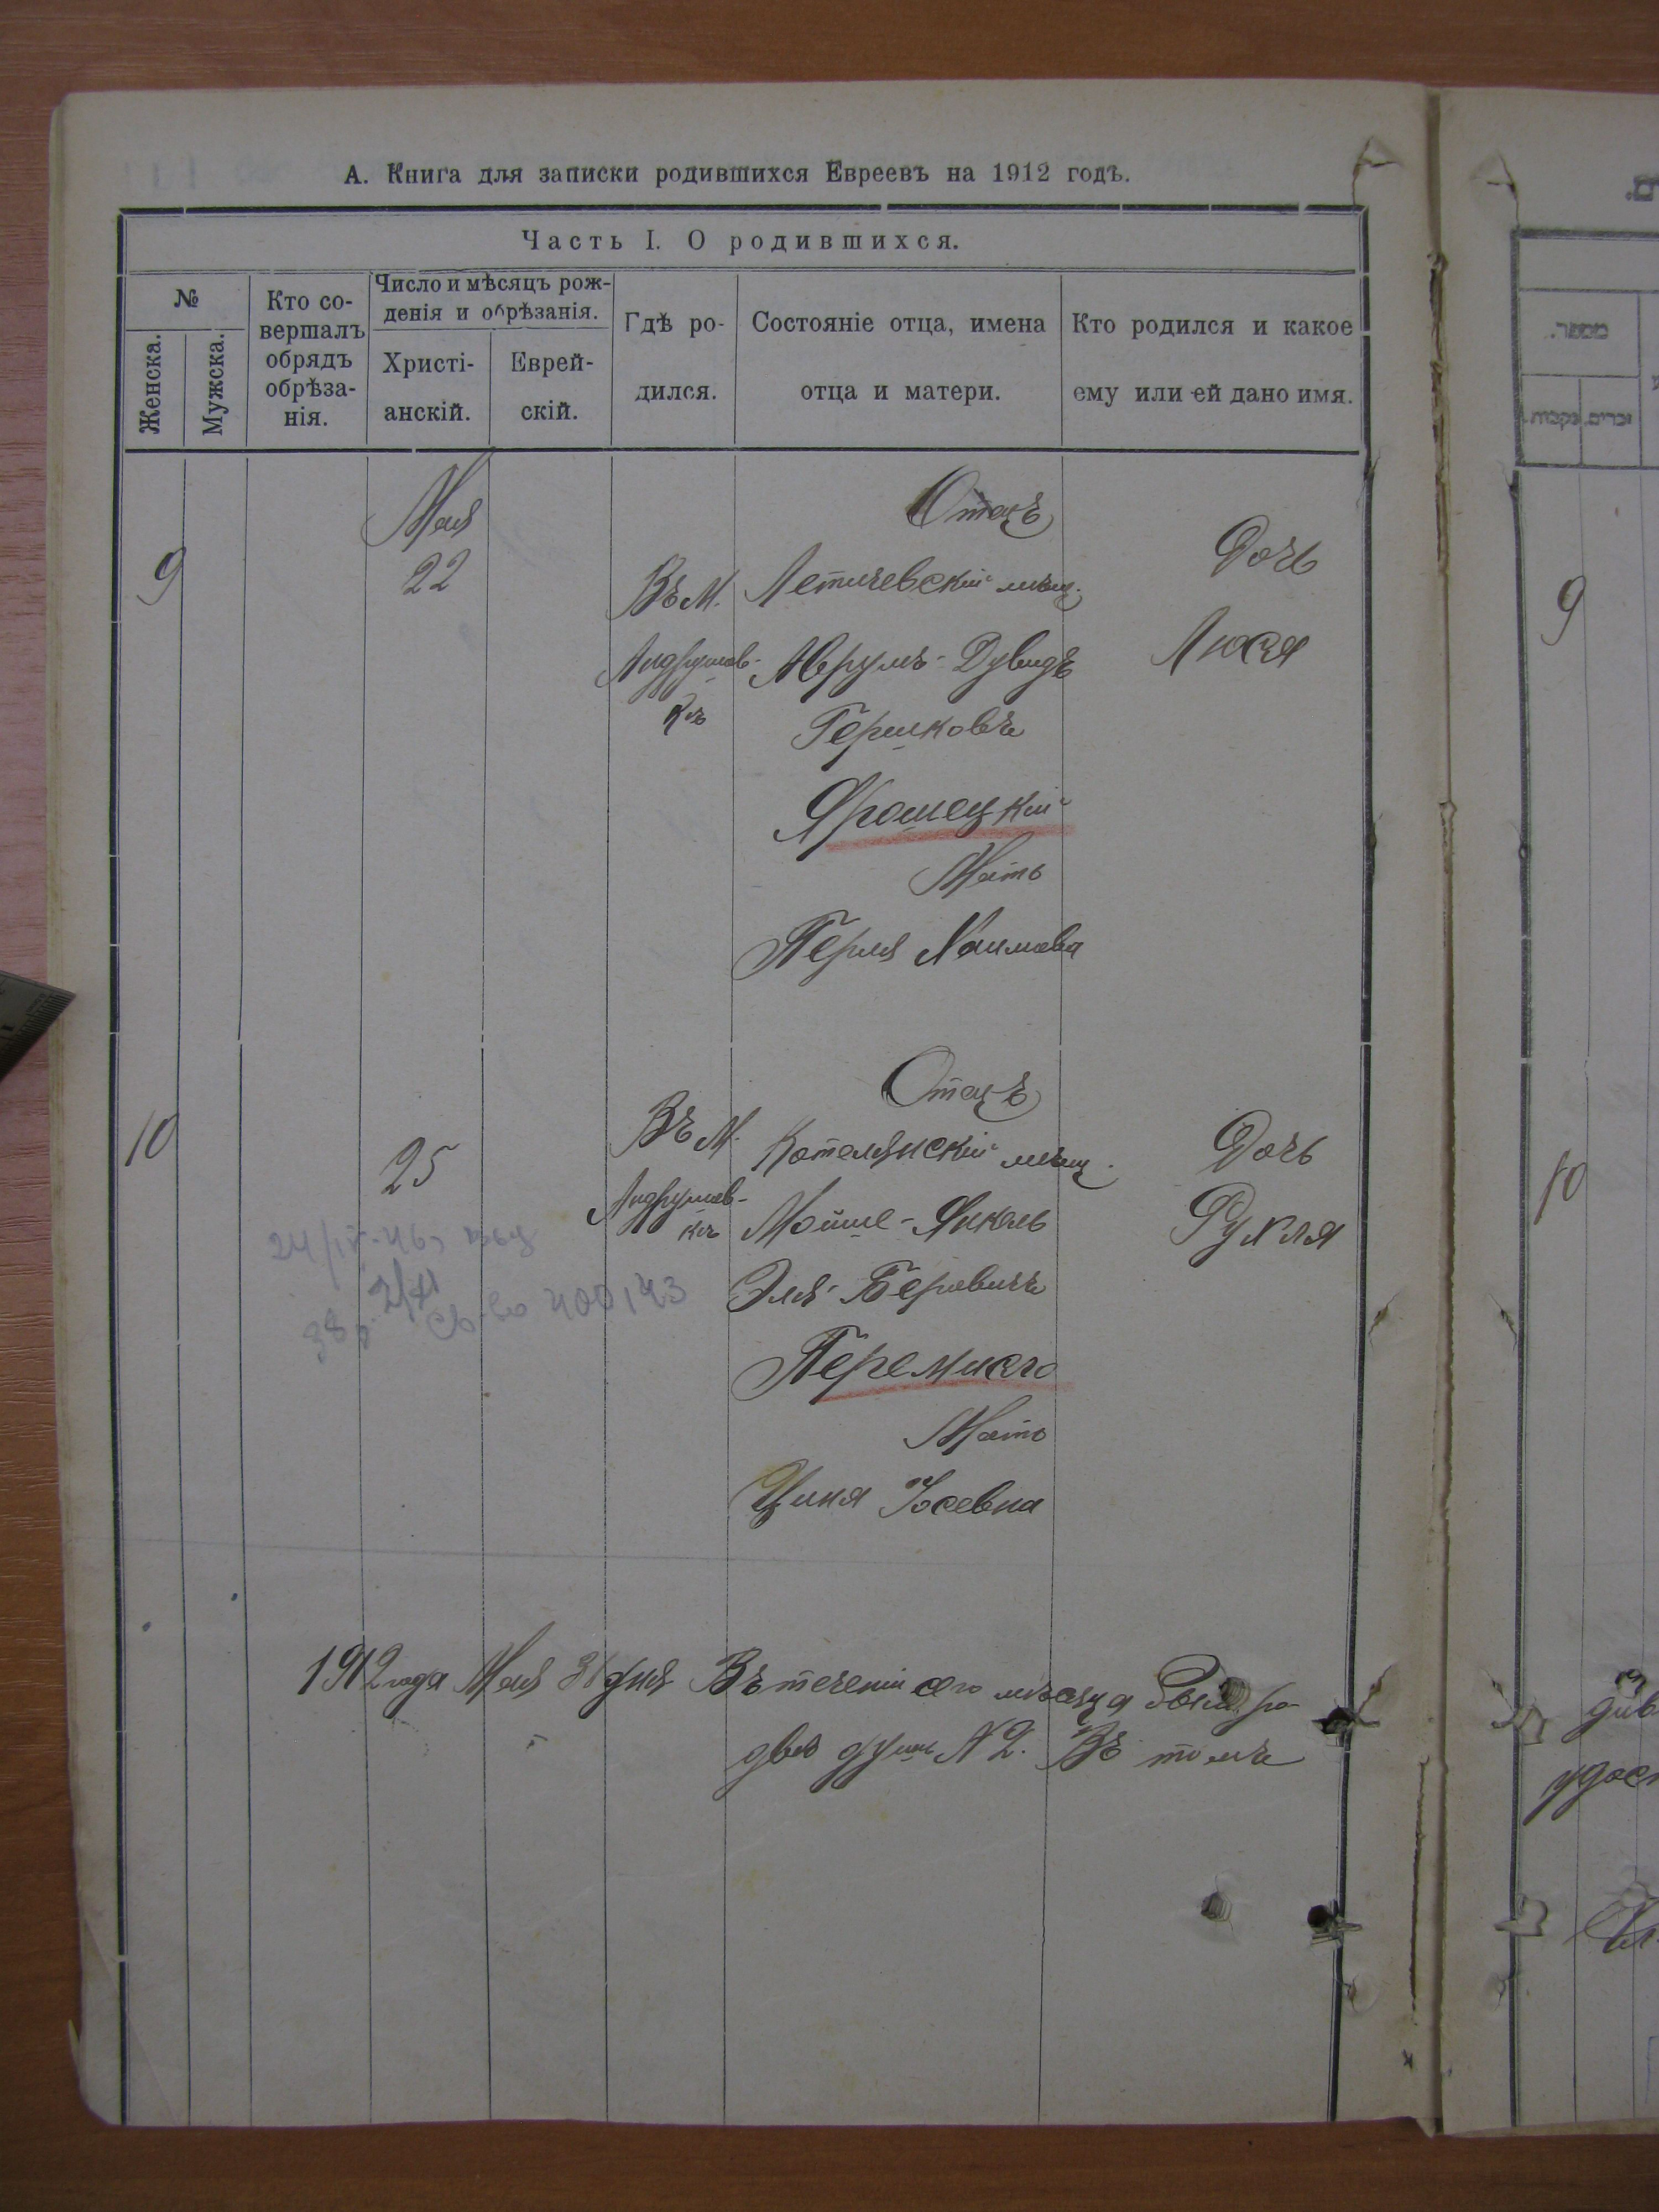 А. Книга для записки родившихся Евреевъ на 1912 годъ.
Часть I. О родившихся.
№
Женска.
Мужска.
Кто со-
вершалъ
обрядъ
обрѣза-
нія.
Число и мѣсяцъ рож-
денія и обрѣзанія.
Христі-
анскій.
Еврей-
скій.
Гдѣ ро-
дился.
Состояніе отца, имена
отца и матери.
Кто родился и какое
ему или ей дано имя.
9
Мая
22
Въ М.
Андрушов-
кѣ
Отецъ
Летичевскій мѣщ.
Аврумъ-Дувидъ
Гершковъ
Ярошецкій
Мать
Перля Хаимова
Дочь
Люся
10
25
Въ М.
Андрушов-
кѣ
Отецъ
Котелянскій мѣщ.
Мойше-Янкель
Эля-Беровичъ
Мать
Циня Іосевна
Дочь
Рухля
1912 года Мая 31 дня Въ теченіи сего мѣсяца ро-
двѣ душъ N 2. Въ томъ
9
10